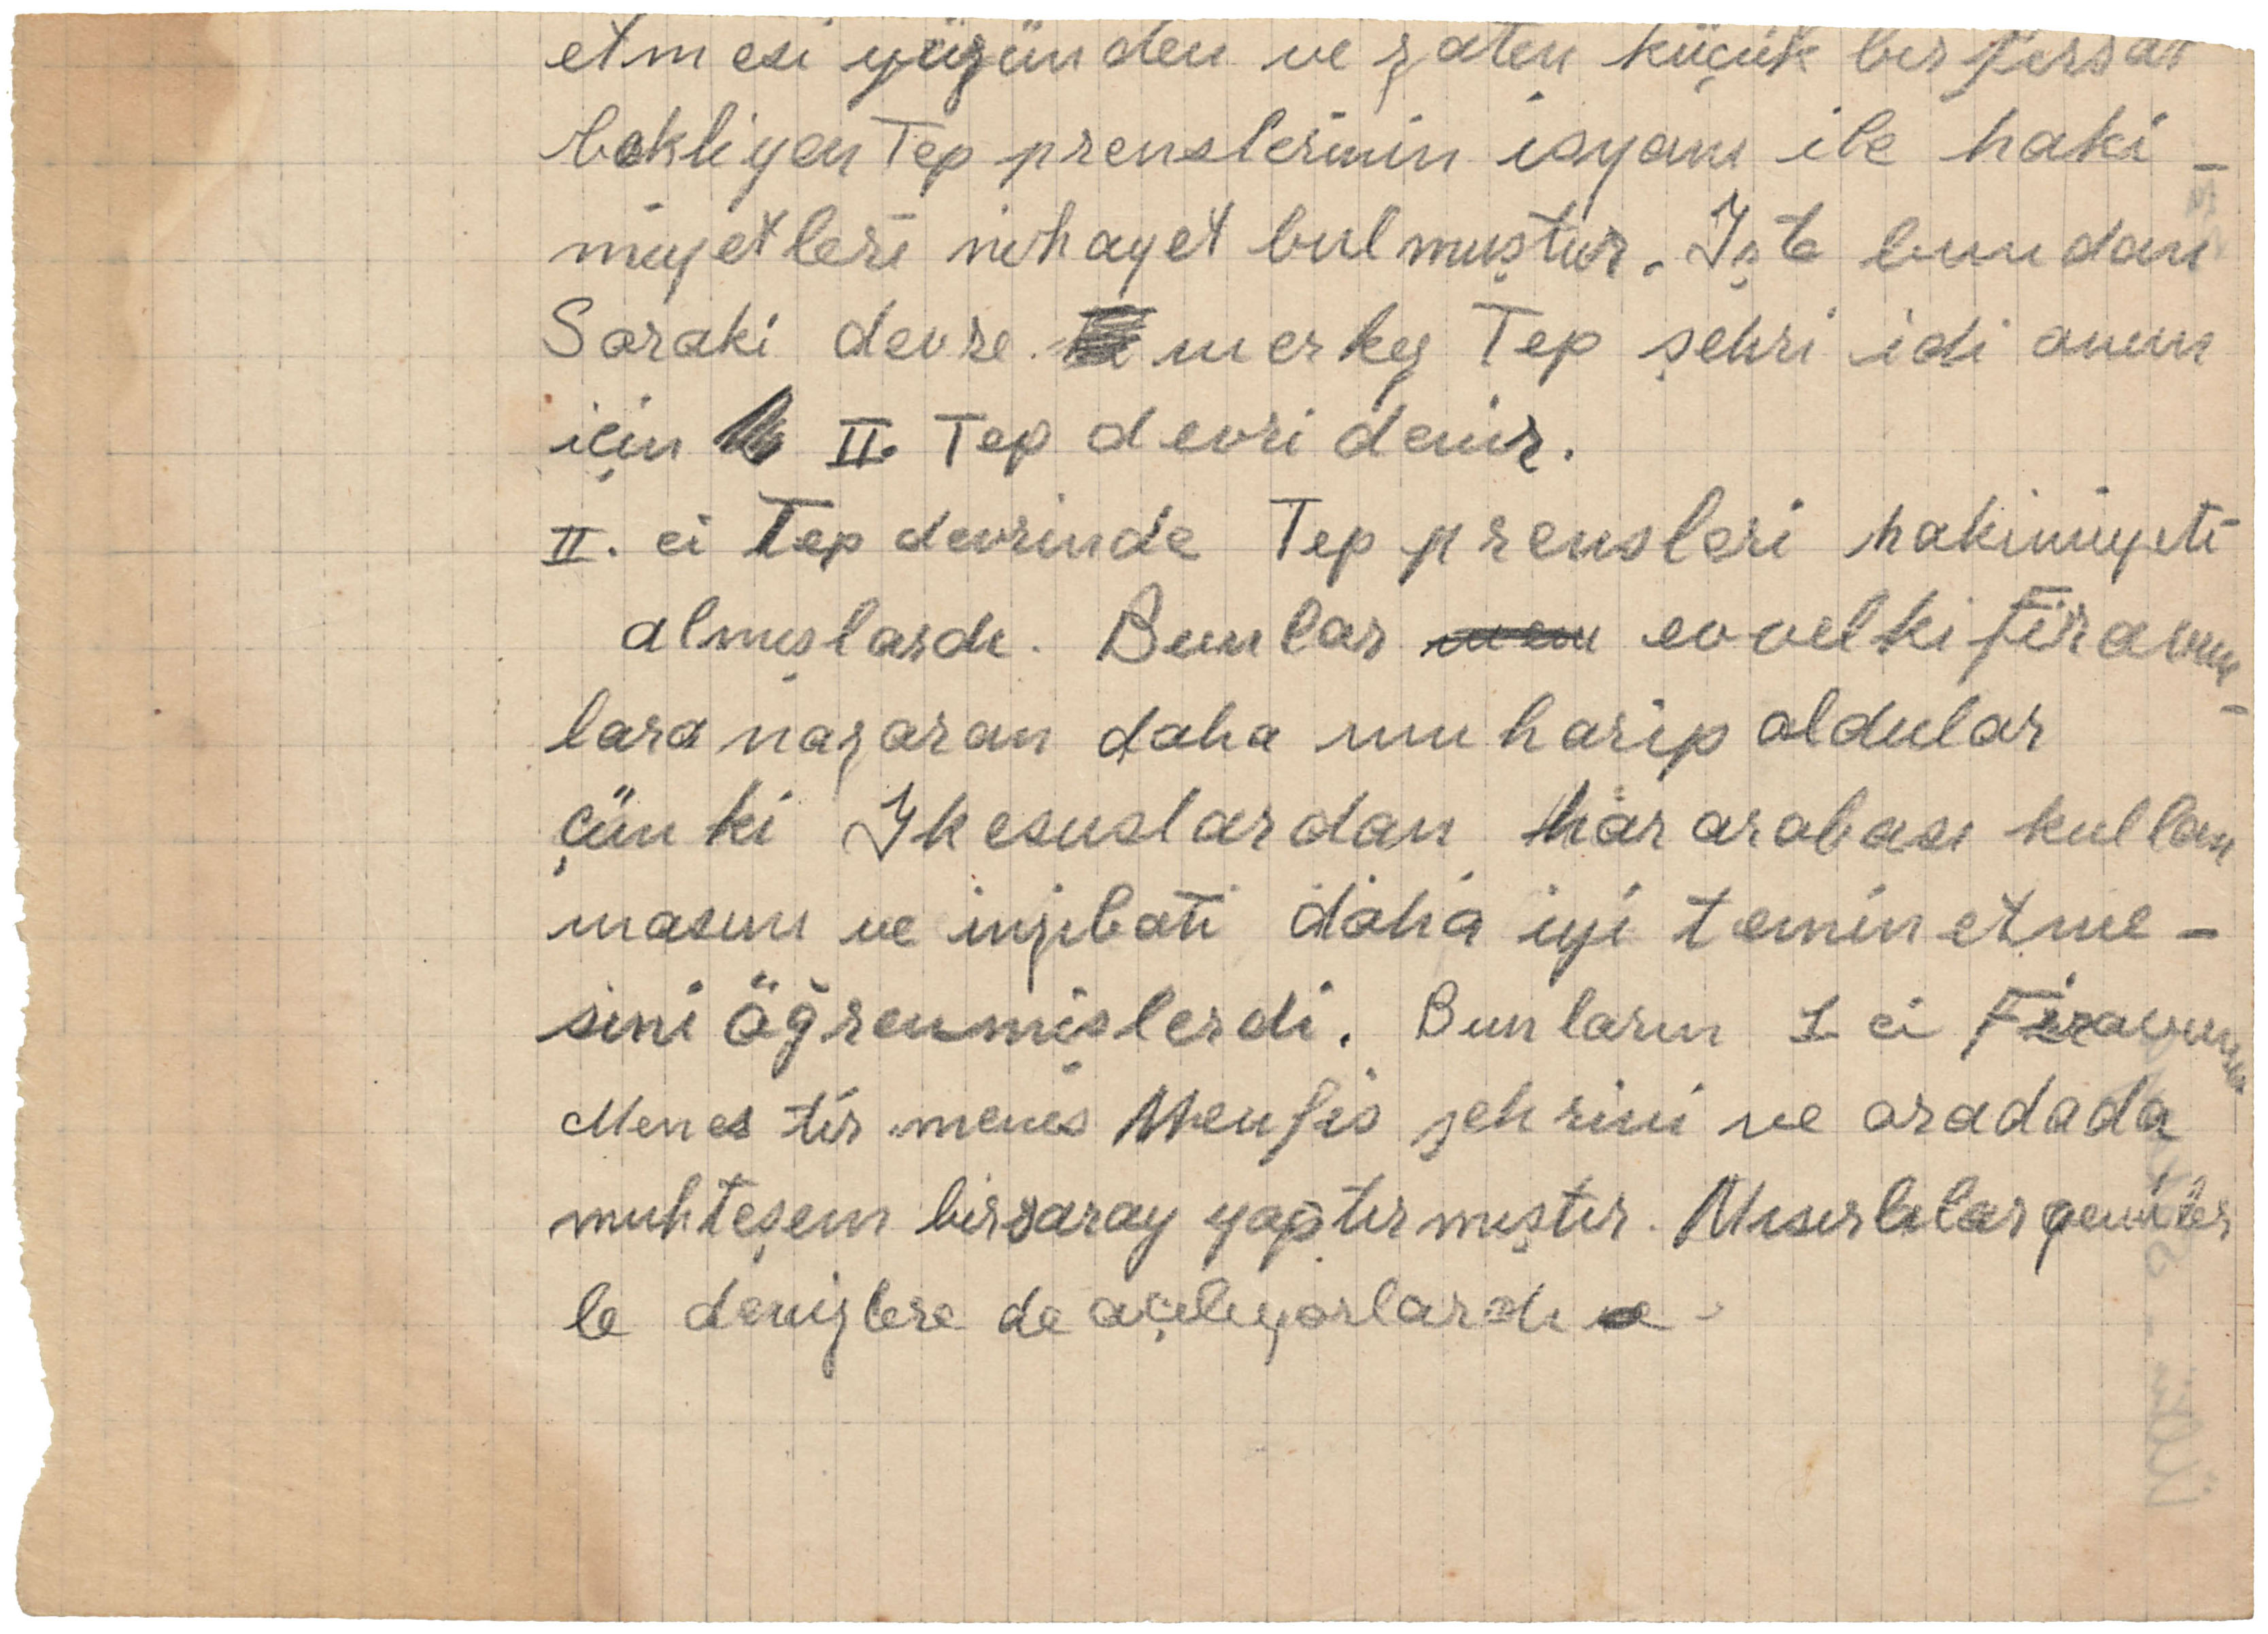 etmesi yüzünden ve zaten küçük bir fırsat
bekliyen Tep prenslerinin isyanı ile haki-
miyetleri nihayet bulmuştur. İşte bundan
Soraki devre merkez Tep şehri idi onun
için II. Tep devri denir.
II. ci Tep devrinde Tep prensleri hakimiyeti
almışlardı. Bunlar evvelki Firavun-
lara nazaran daha muharip oldular
çünki İkesuslardan harp arabası kullan
masını ve inzibatı daha iyi temin etme-
sini öğrenmişlerdi. Bunların 1 ci Firavunu
Menes tir menes Menfis şehrini ve oradada
muhteşem bir saray yaptırmıştır. Mısırlılar gemiler
le denizlere de açılıyorlardı